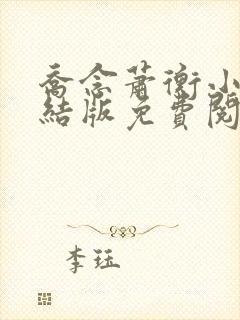 喬念蕭衡小
結版免費閱
李珏